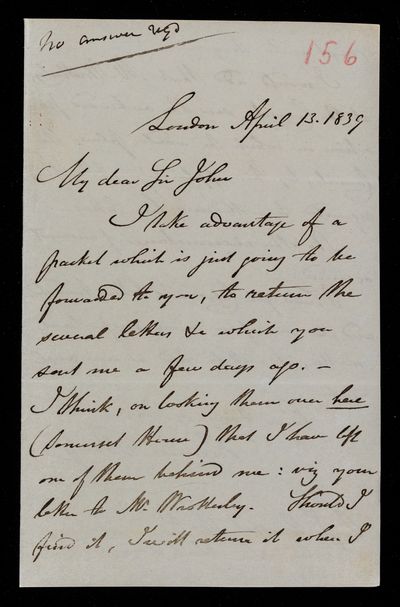 No answer reqd
156
London April 13. 1839
My dear Sir John
I take advantage of a
packet which is just going to be
forwarded to you, to return the
several letters &c which you
sent me a few days ago. –
I think, on looking them over here
(Somerset House) that I have left
one of them behind me: viz your
letter to Mr.
Should I
find it, I will return it when I